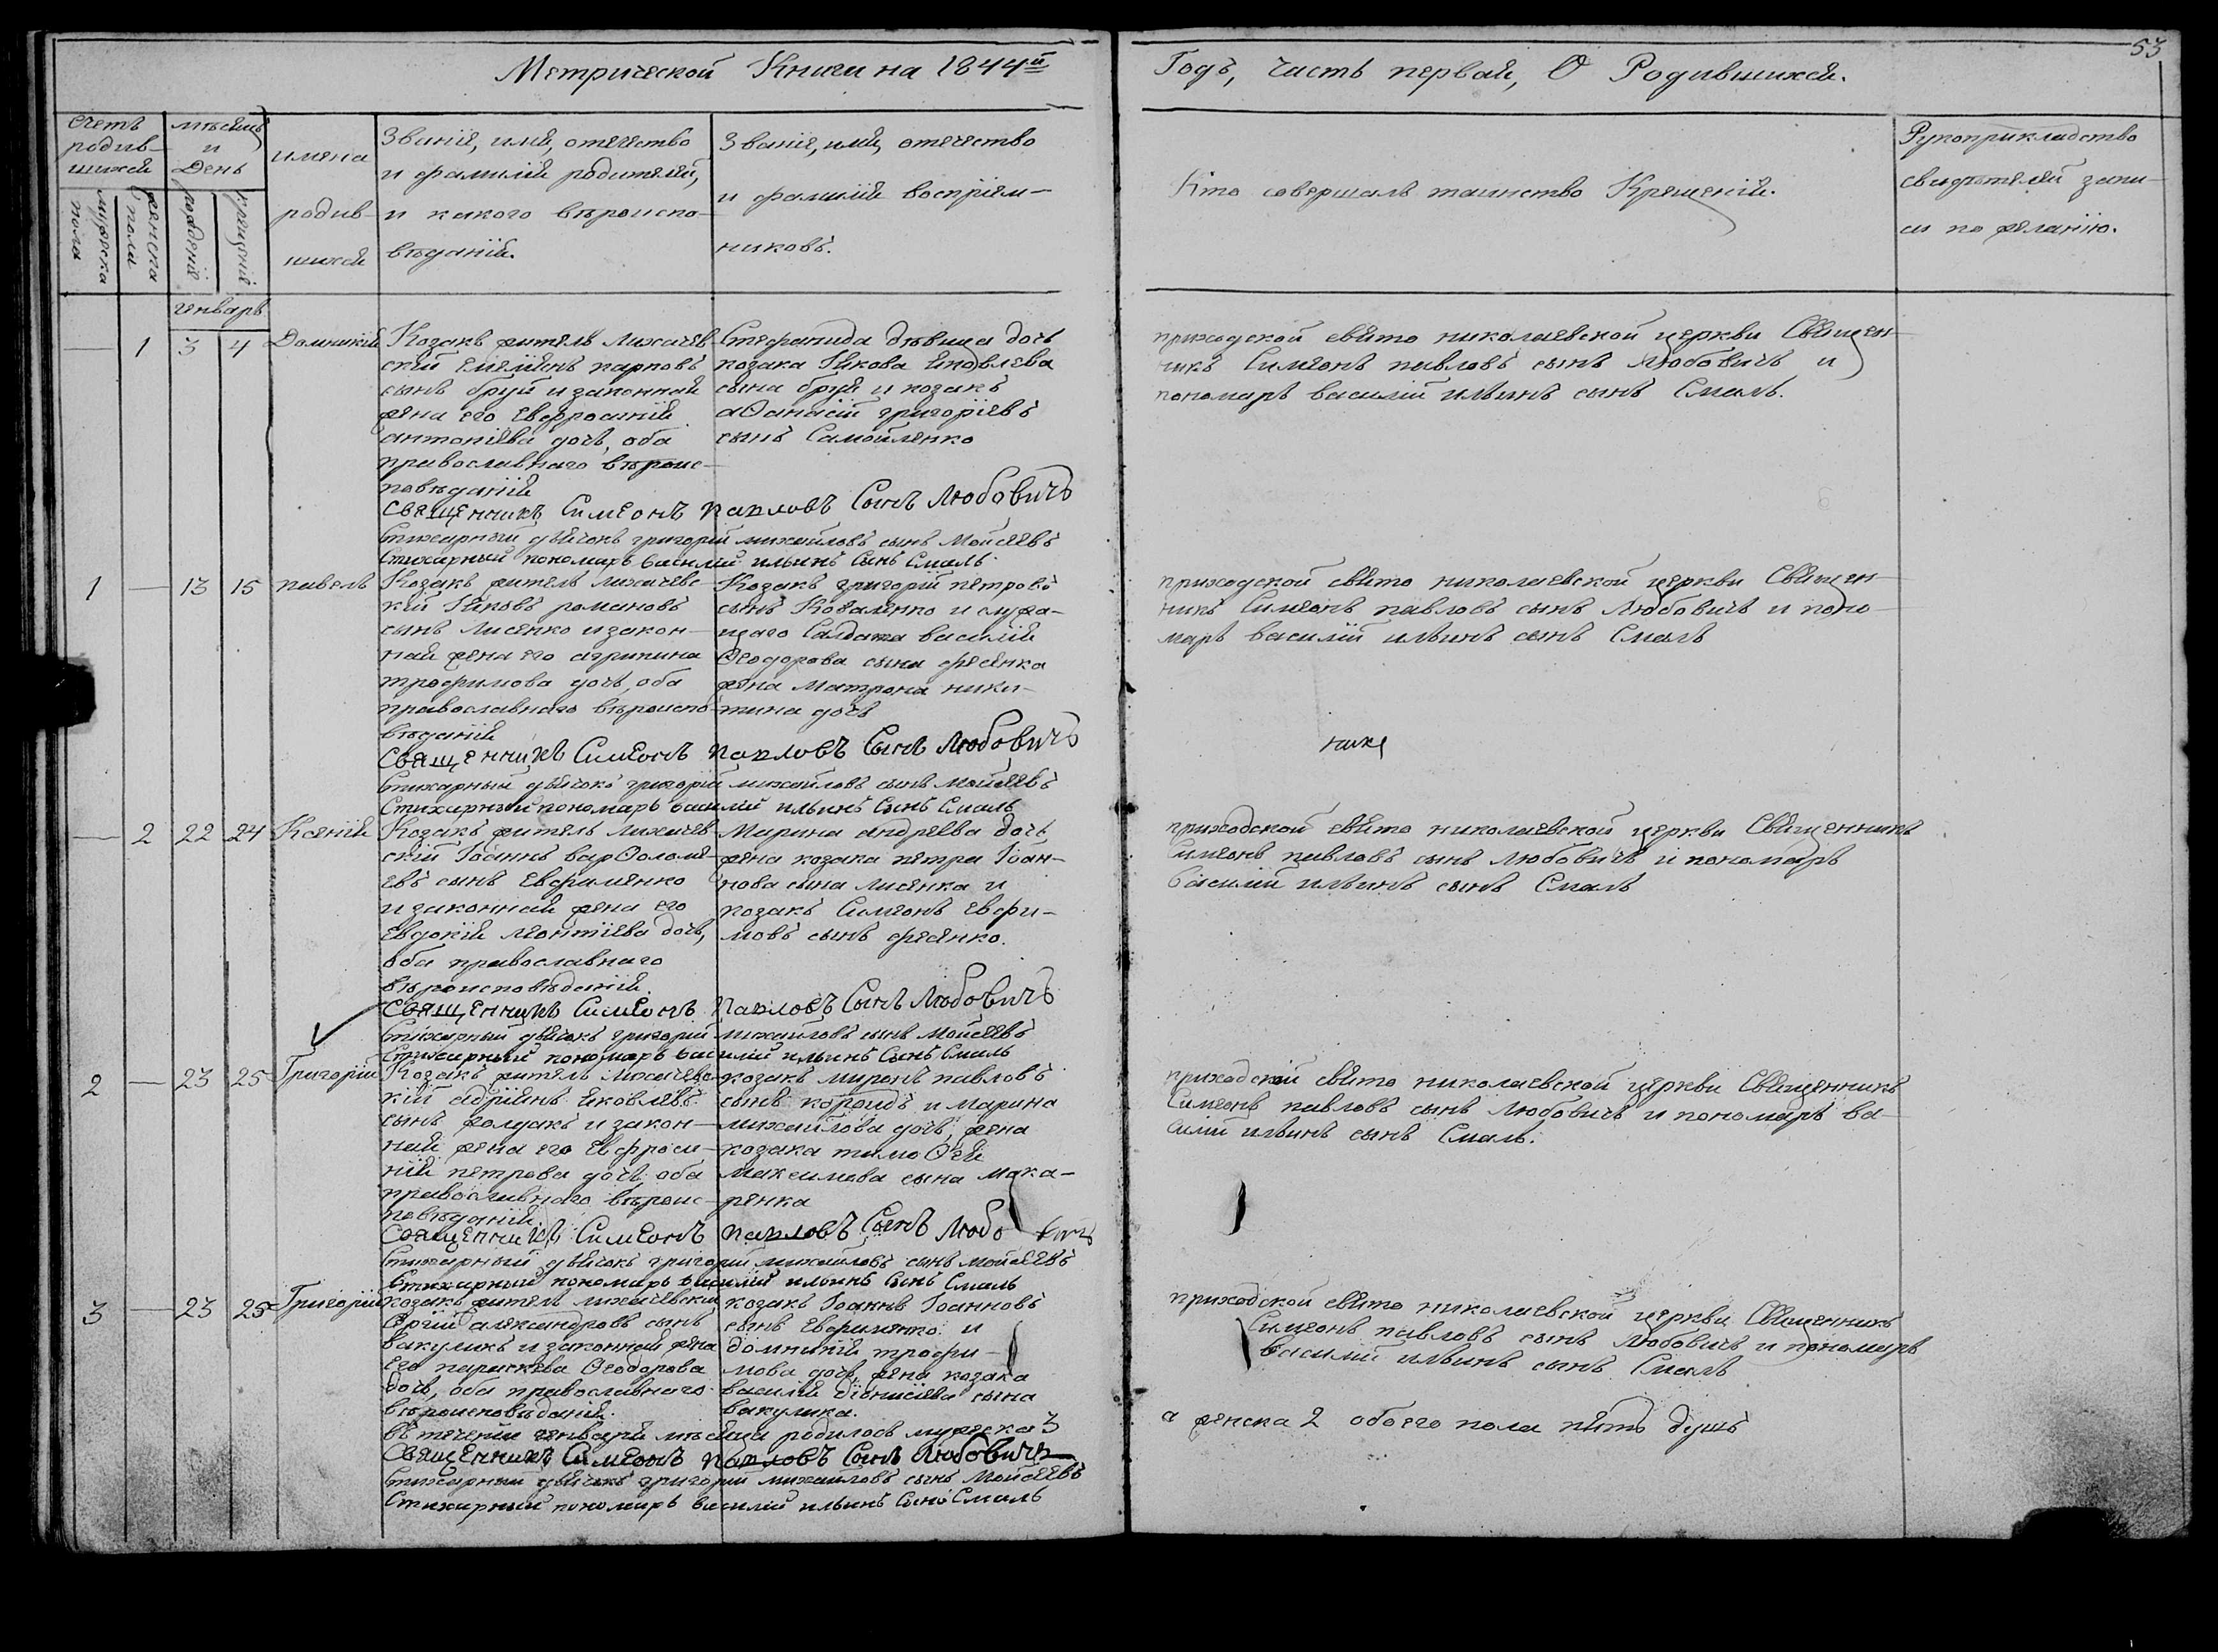 53
Метрической Книги на 1844й Годъ, часть первая, О Родившихся.
Счетъ родив-
шихся
мужеска пола
женска пола
Мѣсяцъ
и
День
рожденія
крещенія
имена
родив-
шихся
Званіе, имя, отечество
и фамилія родителей,
и какого вѣроиспо-
вѣданія.
Званіе, имя, отечество
и фамилія воспріем-
никовъ.
Кто совершалъ таинство Крещенія.
Рукоприкладство
свидѣтелей запи-
си по желанію.
генварь
— 1 3 4 Домникія
Козакъ житель лихачев-
скій Емеліянъ карповъ
сынъ бруй и законная
жена его Евфросинія
антоніева дочь, оба
православнаго вѣроис-
повѣданія
Стефанида дѣвица дочь
козака Іякова Евдова
сына бруя и козакъ
аѲанасій григоріевъ
сынъ Самойленко
приходской свято николаевской церкви Священ-
никъ Симеонъ павловъ сынъ Любовичъ и
пономарь василій ильинъ сынъ Смаль.
Священникъ Симеонъ павловъ Сынъ Любовичъ
Стихарный дьячокъ григорій михайловъ сынъ Мойсеевъ
Стихарный пономарь василій ильинъ Сынъ Смаль
1 — 13 15 павелъ
Козакъ житель лихачевс-
кій Іяковъ романовъ
сынъ Лисенко и закон-
ная жена его агрипина
трофимова дочь, оба
православнаго вѣроиспо-
вѣданія
Козакъ григорій петровъ
сынъ Коваленко и служа-
щаго Салдата василія
Ѳеодорова сына фесенка
жена Матрона ники-
тина дочь
приходской свято николаевской церкви Священ-
никъ Симеонъ павловъ сынъ Любовичъ и поно-
марь василій ильинъ сынъ Смаль
Священникъ Симеонъ павловъ Сынъ Любовичъ
Стихарный дьячокъ григорій михайловъ сынъ Мойсеевъ
Стихарный пономарь василій ильинъ Сынъ Смаль
— 2 22 24 Ксенія
Козакъ житель лихачев-
скій Іоаннъ варѲоломе-
евъ сынъ Евфименко
и законная жена его
Евдокія леонтіева дочь,
оба православнаго
вѣроисповѣданія.
Марина андреева дочь
жена козака петра Іоан-
нова сына лисенка и
козакъ Симеонъ Евфи-
мовъ сынъ фесенко.
приходской свято николаевской церкви Священникъ
Симеонъ павловъ сынъ Любовичъ и пономарь
василій ильинъ сынъ Смаль
Священникъ Симеонъ павловъ Сынъ Любовичъ
Стихарный дьячокъ григорій михайловъ сынъ Мойсеевъ
Стихарный пономарь василій ильинъ Сынъ Смаль
2 — 23 25 Григорій
Козакъ житель лихачевс-
кій адріянъ яковлевъ
сынъ желдакъ и закон-
ная жена его Евфроси-
нія петрова дочь, оба
православнаго вѣроис-
повѣданія
козакъ миронъ павловъ
сынъ коброидъ и Марина
михайлова дочь, жена
козака тимоѲея
максимова сына мака-
ренка
приходской свято николаевской церкви Священникъ
Симеонъ павловъ сынъ Любовичъ и пономарь ва-
силій ильинъ сынъ Смаль.
Священникъ Симеонъ павловъ Сынъ Любовичъ
Стихарный дьячокъ григорій михайловъ сынъ Мойсеевъ
Стихарный пономарь василій ильинъ Сынъ Смаль
3 — 23 25 Григорій
козакъ житель лихачевскій
Сергій александровъ сынъ
вакуликъ и законная жена
его параскева Ѳеодорова
дочь, оба православнаго
вѣроисповѣданія.
козакъ Іоаннъ Іоанновъ
сынъ Евфименко и
домникія трофи-
мова дочь, жена козака
василія діонисіева сына
вакулика.
приходской свято николаевской церкви Священникъ
Симеонъ павловъ сынъ Любовичъ и пономарь
василій ильинъ сынъ Смаль
въ теченіи генваря мѣсяца родилось мужеска 3
а женска 2 обоего пола пять душъ
Священникъ Симеонъ павловъ Сынъ Любовичъ
Стихарный дьячокъ григорій михайловъ сынъ Мойсеевъ
Стихарный пономарь василій ильинъ Сынъ Смаль